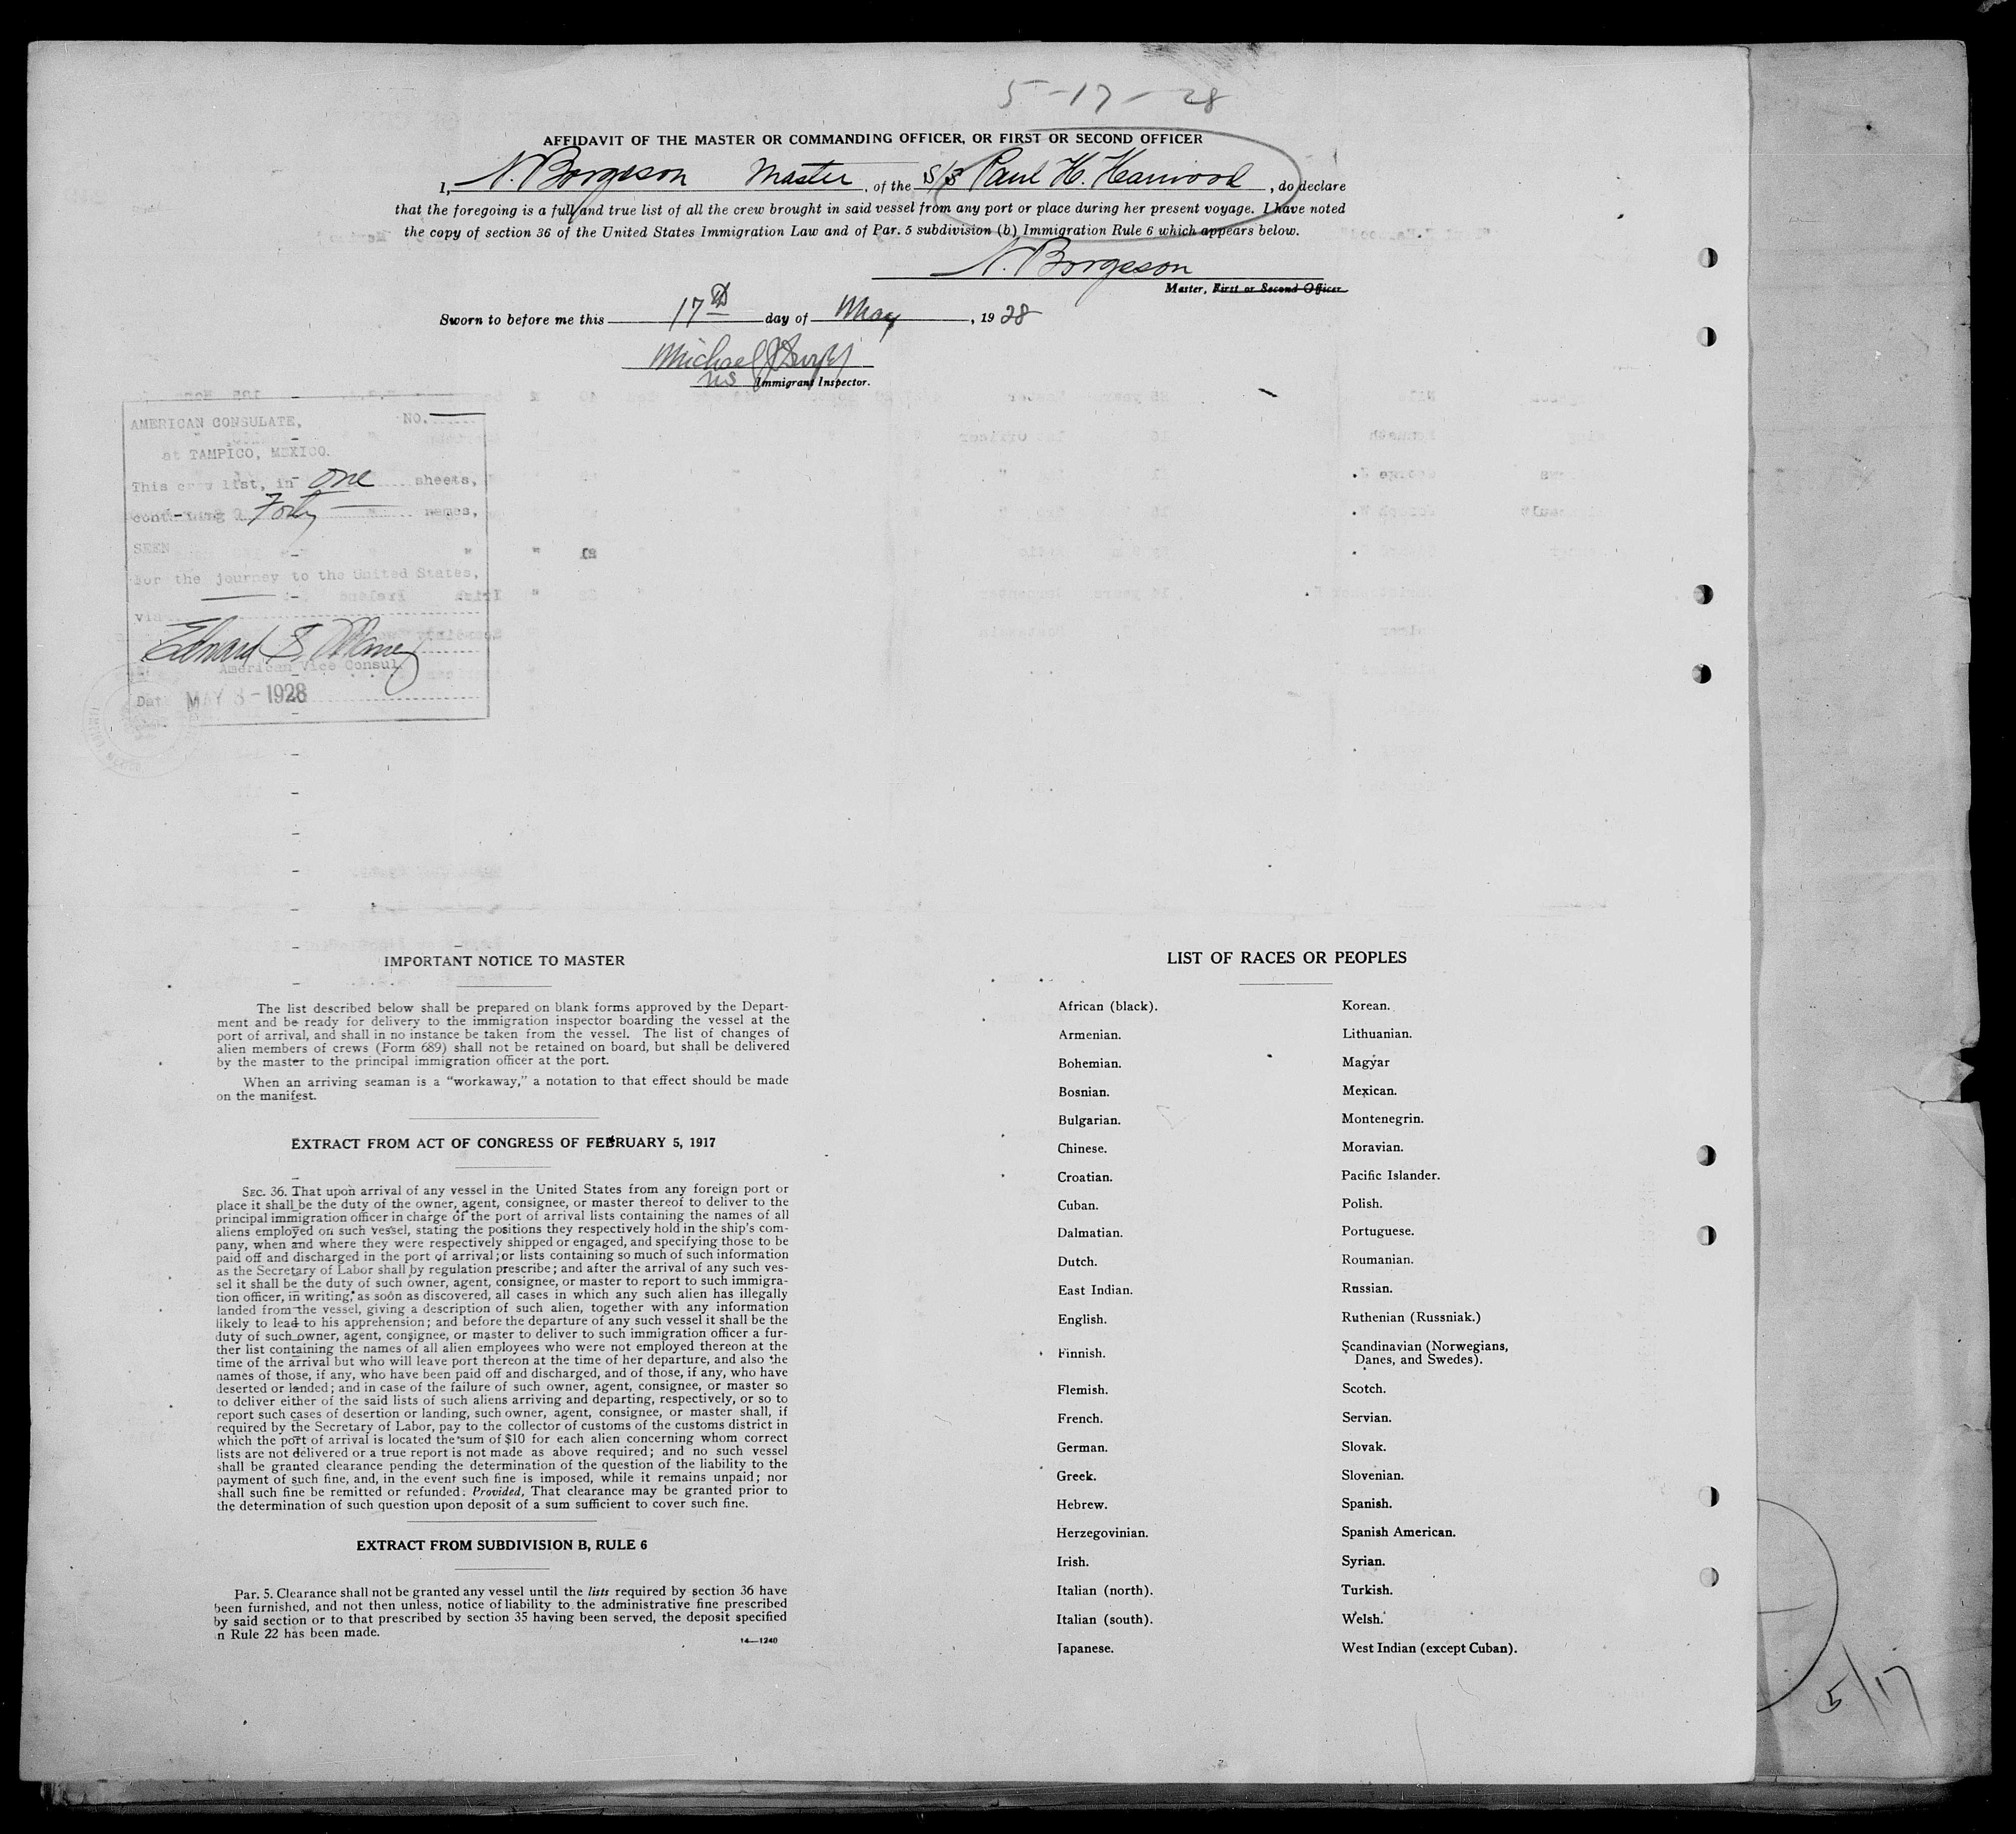 5-17-28
AFFIDAVIT OF THE MASTER OR COMMANDING OFFICER, OR FIRST OR SECOND OFFICER
I, N. Borgeson Master, of the S/S Paul H. Harwood, do declare
that the foregoing is a full and true list of all the crew brought in said vessel from any port or place during her present voyage. I have noted
the copy of section 36 of the United States Immigration Law and of Par. 5 subdivision (b) Immigration Rule 6 which appears below.
N. Borgeson
Master, First or Second Officer
Sworn to before me this 17th day of May, 1928
Michael J
US Immigrant Inspector.
AMERICAN CONSULATE, NO.
at TAMPICO, MEXICO.
This crew list, in one sheets,
containing Forty names,
SEEN
For the journey to the United States,
via
Edward S.
American Vice Consul
Date MAY 8-1928
IMPORTANT NOTICE TO MASTER
The list described below shall be prepared on blank forms approved by the Depart-
ment and be ready for delivery to the immigration inspector boarding the vessel at the
port of arrival, and shall in no instance be taken from the vessel. The list of changes of
alien members of crews (Form 689) shall not be retained on board, but shall be delivered
by the master to the principal immigration officer at the port.
When an arriving seaman is a "workaway," a notation to that effect should be made
on the manifest.
EXTRACT FROM ACT OF CONGRESS OF FEBRUARY 5, 1917
SEC. 36. That upon arrival of any vessel in the United States from any foreign port or
place it shall be the duty of the owner, agent, consignee, or master thereof to deliver to the
principal immigration officer in charge of the port of arrival lists containing the names of all
aliens employed on such vessel, stating the positions they respectively hold in the ship's com-
pany, when and where they were respectively shipped or engaged, and specifying those to be
paid off and discharged in the port of arrival; or lists containing so much of such information
as the Secretary of Labor shall by regulation prescribe; and after the arrival of any such ves-
sel it shall be the duty of such owner, agent, consignee, or master to report to such immigra-
tion officer, in writing, as soon as discovered, all cases in which any such alien has illegally
landed from the vessel, giving a description of such alien, together with any information
likely to lead to his apprehension; and before the departure of any such vessel it shall be the
duty of such owner, agent, consignee, or master to deliver to such immigration officer a fur-
ther list containing the names of all alien employees who were not employed thereon at the
time of the arrival but who will leave port thereon at the time of her departure, and also the
names of those, if any, who have been paid off and discharged, and of those, if any, who have
deserted or landed; and in case of the failure of such owner, agent, consignee, or master so
to deliver either of the said lists of such aliens arriving and departing, respectively, or so to
report such cases of desertion or landing, such owner, agent, consignee, or master shall, if
required by the Secretary of Labor, pay to the collector of customs of the customs district in
which the port of arrival is located the sum of $10 for each alien concerning whom correct
lists are not delivered or a true report is not made as above required; and no such vessel
shall be granted clearance pending the determination of the question of the liability to the
payment of such fine, and, in the event such fine is imposed, while it remains unpaid; nor
shall such fine be remitted or refunded: Provided, That clearance may be granted prior to
the determination of such question upon deposit of a sum sufficient to cover such fine.
EXTRACT FROM SUBDIVISION B, RULE 6
Par. 5. Clearance shall not be granted any vessel until the lists required by section 36 have
been furnished, and not then unless, notice of liability to the administrative fine prescribed
by said section or to that prescribed by section 35 having been served, the deposit specified
in Rule 22 has been made.
14—1240
LIST OF RACES OR PEOPLES
African (black).
Armenian.
Bohemian.
Bosnian.
Bulgarian.
Chinese.
Croatian.
Cuban.
Dalmatian.
Dutch.
East Indian.
English.
Finnish.
Flemish.
French.
German.
Greek.
Hebrew.
Herzegovinian.
Irish.
Italian (north).
Italian (south).
Japanese.
Korean.
Lithuanian.
Magyar
Mexican.
Montenegrin.
Moravian.
Pacific Islander.
Polish.
Portuguese.
Roumanian.
Russian.
Ruthenian (Russniak.)
Scandinavian (Norwegians,
Danes, and Swedes).
Scotch.
Servian.
Slovak.
Slovenian.
Spanish.
Spanish American.
Syrian.
Turkish.
Welsh.
West Indian (except Cuban).
5/17